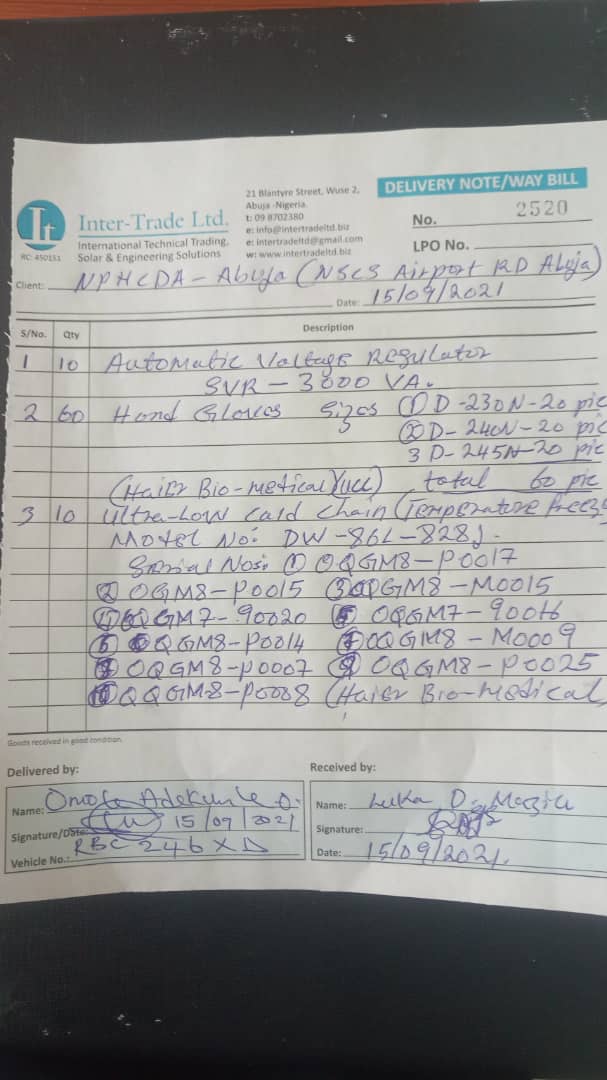 It
RC: 450151
Inter-Trade Ltd.
International Technical Trading,
Solar & Engineering Solutions
21 Blantyre Street, Wuse 2,
Abuja -Nigeria.
t: 09 8702380
e: info@intertradeltd.biz
e: intertradeltd@gmail.com
w: www.intertradeltd.biz
DELIVERY NOTE/WAY BILL
No. 2520
LPO No.
Client: NPHCDA - Abuja (NSCS Airport RD Abuja)
Date: 15/09/2021
S/No. Qty Description
1 10 Automatic Voltage Regulator
SVR - 3000 VA.
2 60 Hand Gloves Sizes ① D-230N-20 pic
② D-240N-20 pic
3 D-245N-20 pic
(Haier Bio-medical) total 60 pic
3 10 Ultra-Low Cold Chain (Temperature freez
Model No: DW-86L-828J.
Serial Nos: ① OQGM8-P0017
② OGM8-P0015 ③ QPGM8-M0015
④ QGM7-90020 ⑤ OQGM7-90016
⑥ QGM8-P0014 ⑦ OQGM8-M0009
⑧ OQGM8-P0007 ⑨ OQGM8-P0025
⑩ QQGM8-P0008 (Haier Bio-Medical
Goods received in good condition.
Delivered by:
Name: Omola Adekunle O.
Signature/Date: 15/09/2021
Vehicle No.: RBC 246 XD
Received by:
Name: Luka D.
Signature:
Date: 15/09/2021.